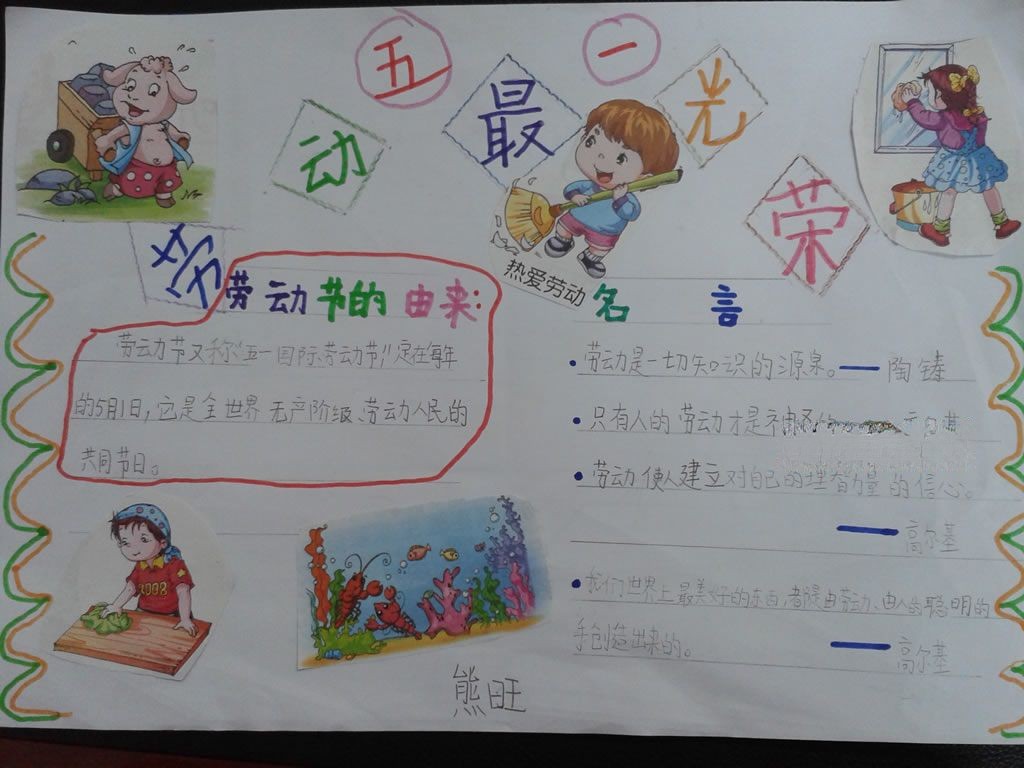 五一
劳动最光荣
热爱劳动
劳动节的由来:
劳动节又称“五一国际劳动节”,定在每年
的5月1日,它是全世界无产阶级、劳动人民的
共同节日。
名言
劳动是一切知识的源泉。——陶铸
只有人的劳动才是神圣的
劳动使人建立对自己的理智力量的信心。
——高尔基
我们世界上最美好的东西,都是由劳动、由人的聪明的
手创造出来的。——高尔基
2008
熊旺